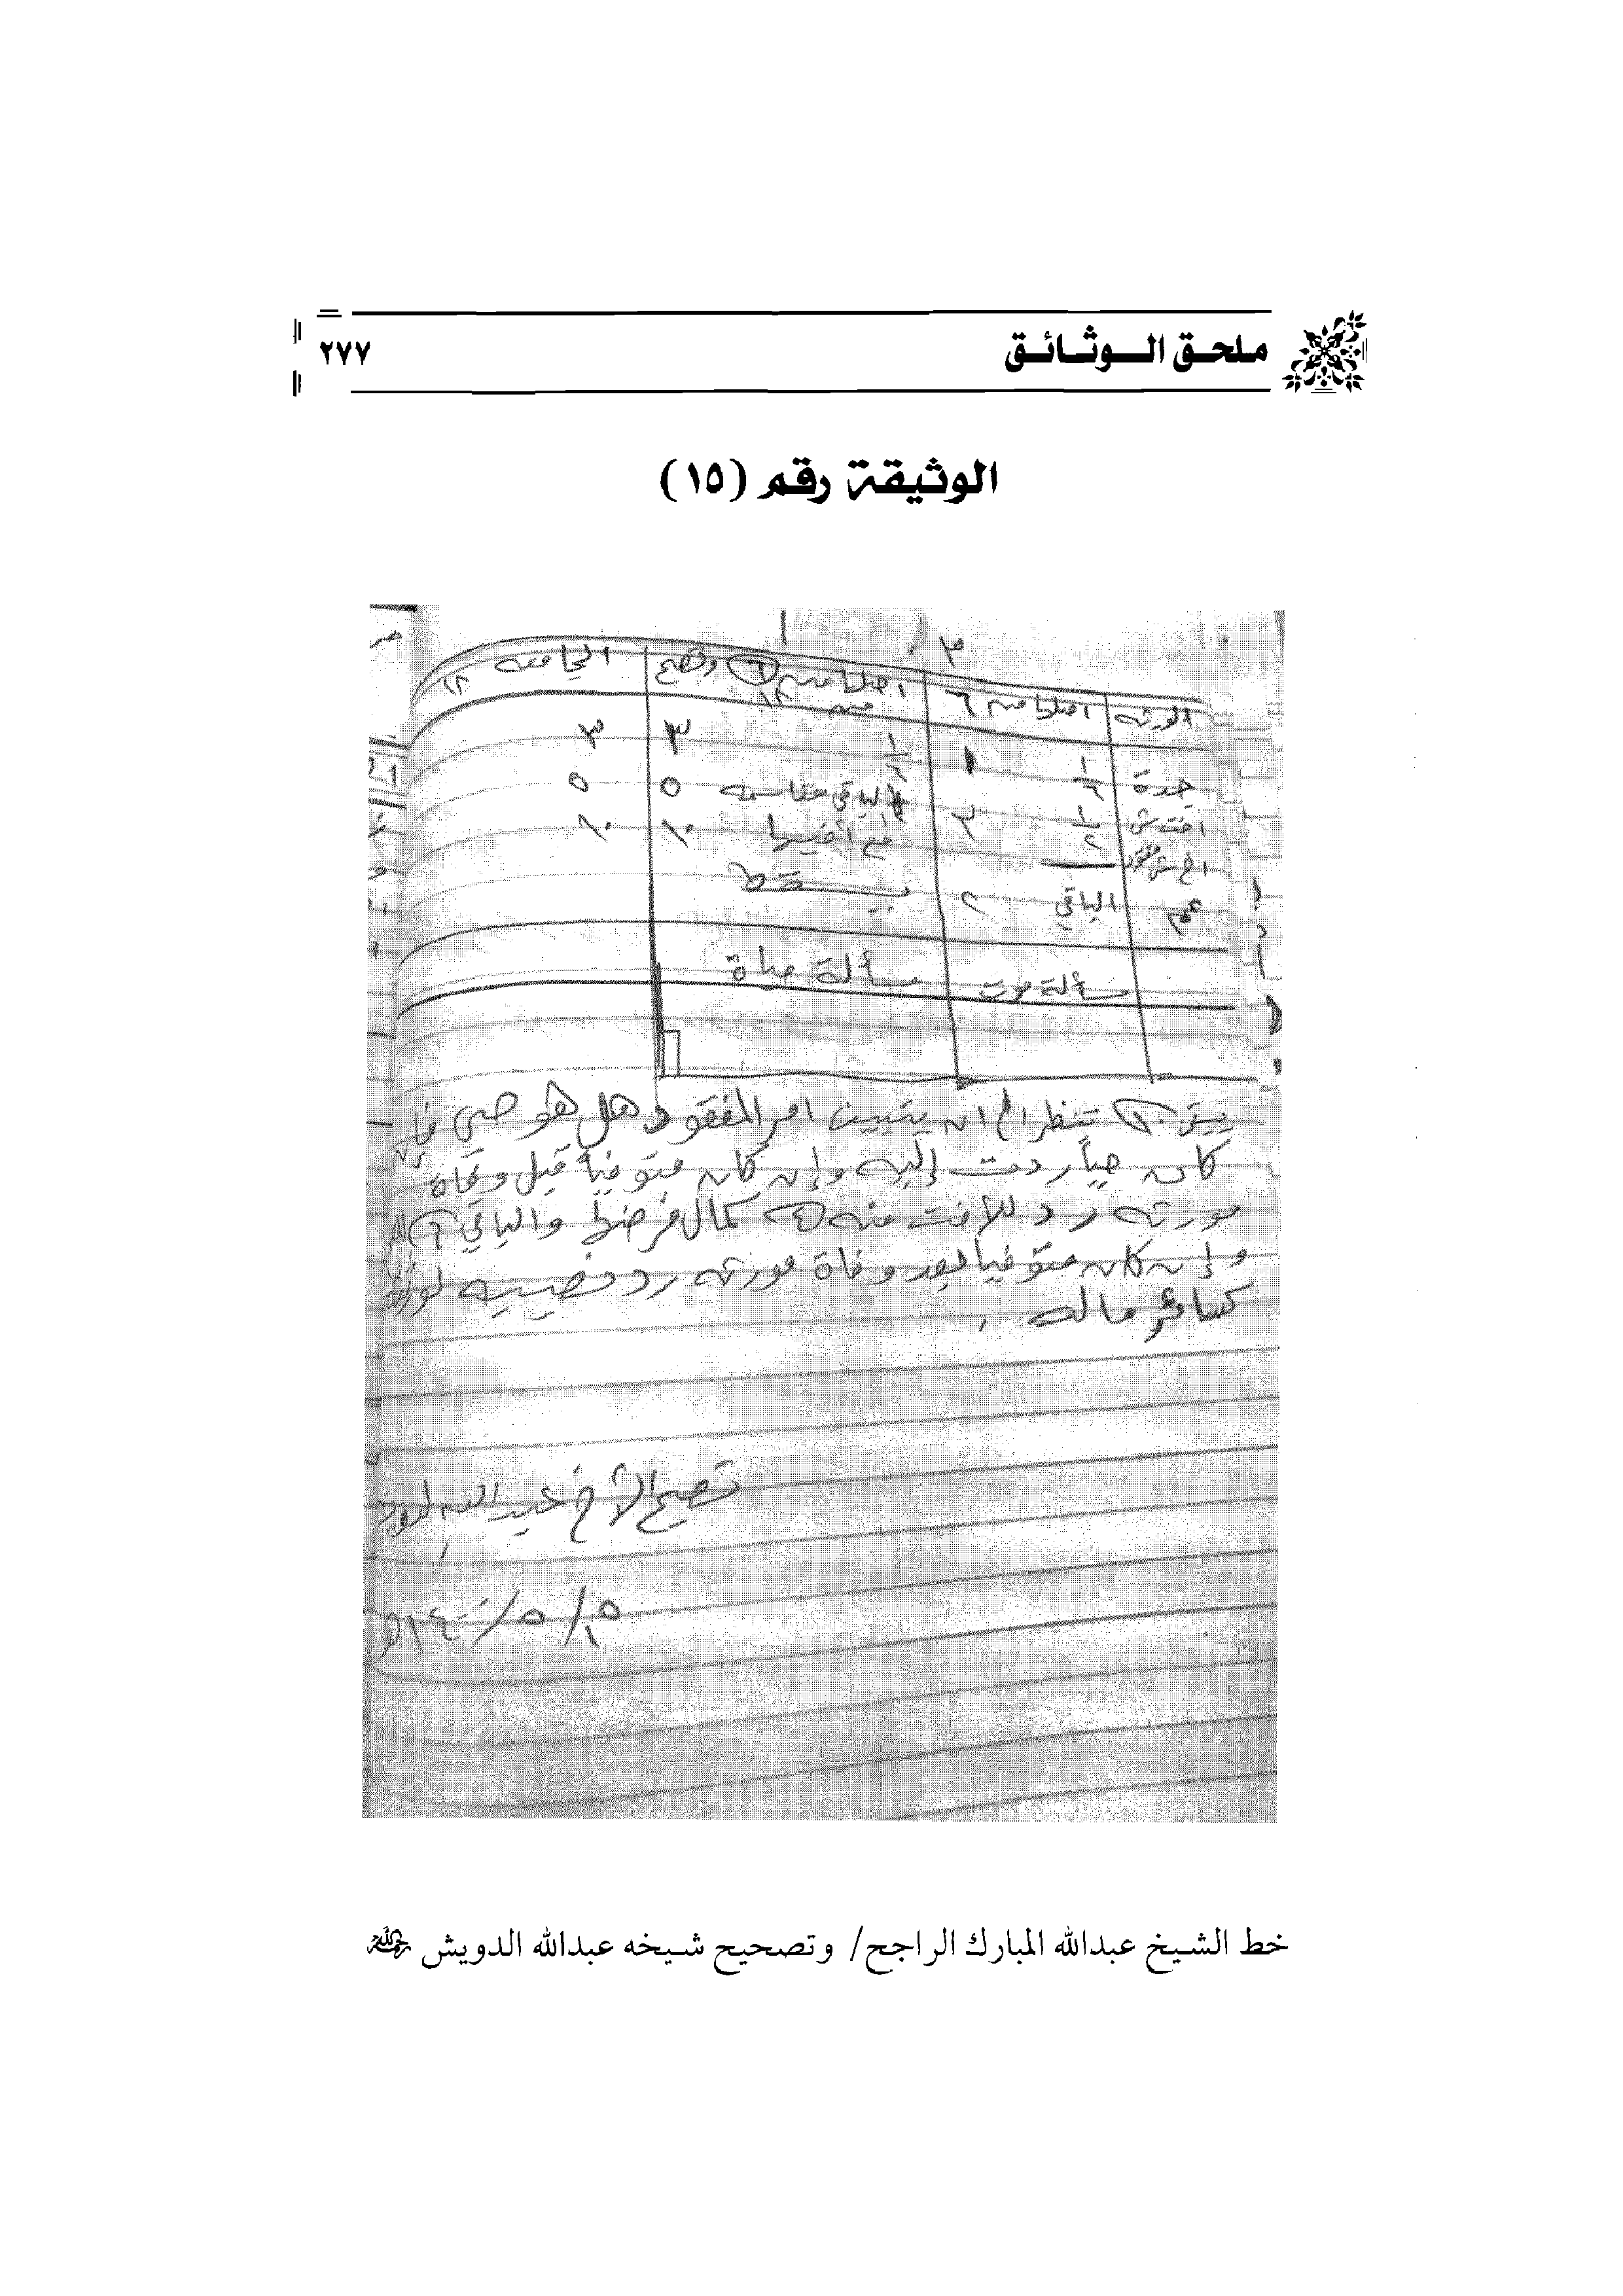 ملحق الوثائق
٢٧٧
الوثيقة رقم (١٥)
٣
الورثه اصلها من ٦ اصلها من ٦ وتصح الجامعه ١٨
منه ١٨
جدة ١/٦ ١ ١/٦ ٣ ٣
اخت ش ١/٢ ٣ الباقي مقاسمه ٥ ٥
اخ ش مفقود مع أخيها ١٠ ١٠
عم الباقي ٢ يسقط
مسألة موت مسألة حياة
يبقى ١٠ تنظر الى ان يتبين امر المفقود هل هو حي فإن
كان حياً ردت إليه وإن كان متوفياً قبل وفاة
مورثه رد للأخت منه ٤ كمال فرضها والباقي ٦ للعم
وإن كان متوفيا بعد وفاة مورثه رد نصيبه لورثته
كسائر ماله .
تصحيح الأخ عبد الله الدويش
١٥/ ٥/ ١٤٠٠هـ
خط الشيخ عبدالله المبارك الراجح/ وتصحيح شيخه عبدالله الدويش رحمه الله